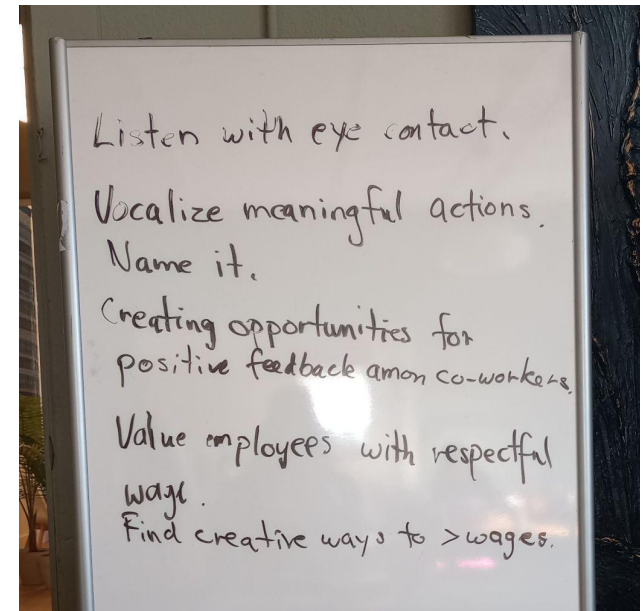 Listen with eye contact.
Vocalize meaningful actions.
Name it.
Creating opportunities for
positive feedback amon co-workers.
Value employees with respectful
wage.
Find creative ways to > wages.